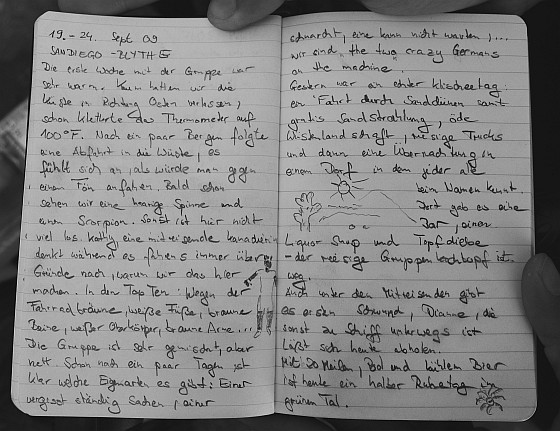 19.-24. Sept 09
SANDIEGO - BLYTHE
Die erste Woche mit der Gruppe war
sehr warm. Kaum hatten wir die
Küste in Richtung Osten verlassen,
schon kletterte das Thermometer auf
100°F. Nach ein paar Bergen folgte
eine Abfahrt in die Wüste, es
fühlt sich an, als würde man gegen
einen Fön anfahren. Bald schon
sehen wir eine haarige Spinne und
einen Skorpion. Sonst ist hier nicht
viel los. Kathy eine mitreisende Kanadierin
denkt während des fahrens immer über
Gründe nach, warum wir das hier
machen. In den Top Ten: Wegen der
Fahrradbräune, weiße Füße, braune
Beine, weißer Oberkörper, braune Arme...
Die Gruppe ist sehr gemischt, aber
nett. Schon nach ein paar Tagen ist
klar welche Eigenarten es gibt: Einer
vergisst ständig Sachen, einer
schnarcht, eine kann nicht warten, ...
wir sind "the two crazy Germans
on the machine".
Gestern war ein echter Klischeetag:
ein Fahrt durch Sanddünen samt
gratis Sandstrahlung, öde
Wüstenlandschaft, riesige Trucks
und dann eine Übernachtung in
einem Dorf in dem jeder alle
beim Namen kennt.
Dort gab es eine
Bar, einen
Liquor Shop und Topfdiebe
- der riesige Gruppenkochtopf ist
weg.
Auch unter den Mitreisenden gibt
es ersten Schwund, Dianne, die
sonst zu Schiff unterwegs ist
läßt sich heute abholen.
Mit 30 Meilen, Pool und kühlem Bier
ist heute ein halber Ruhetag im
grünen Tal.